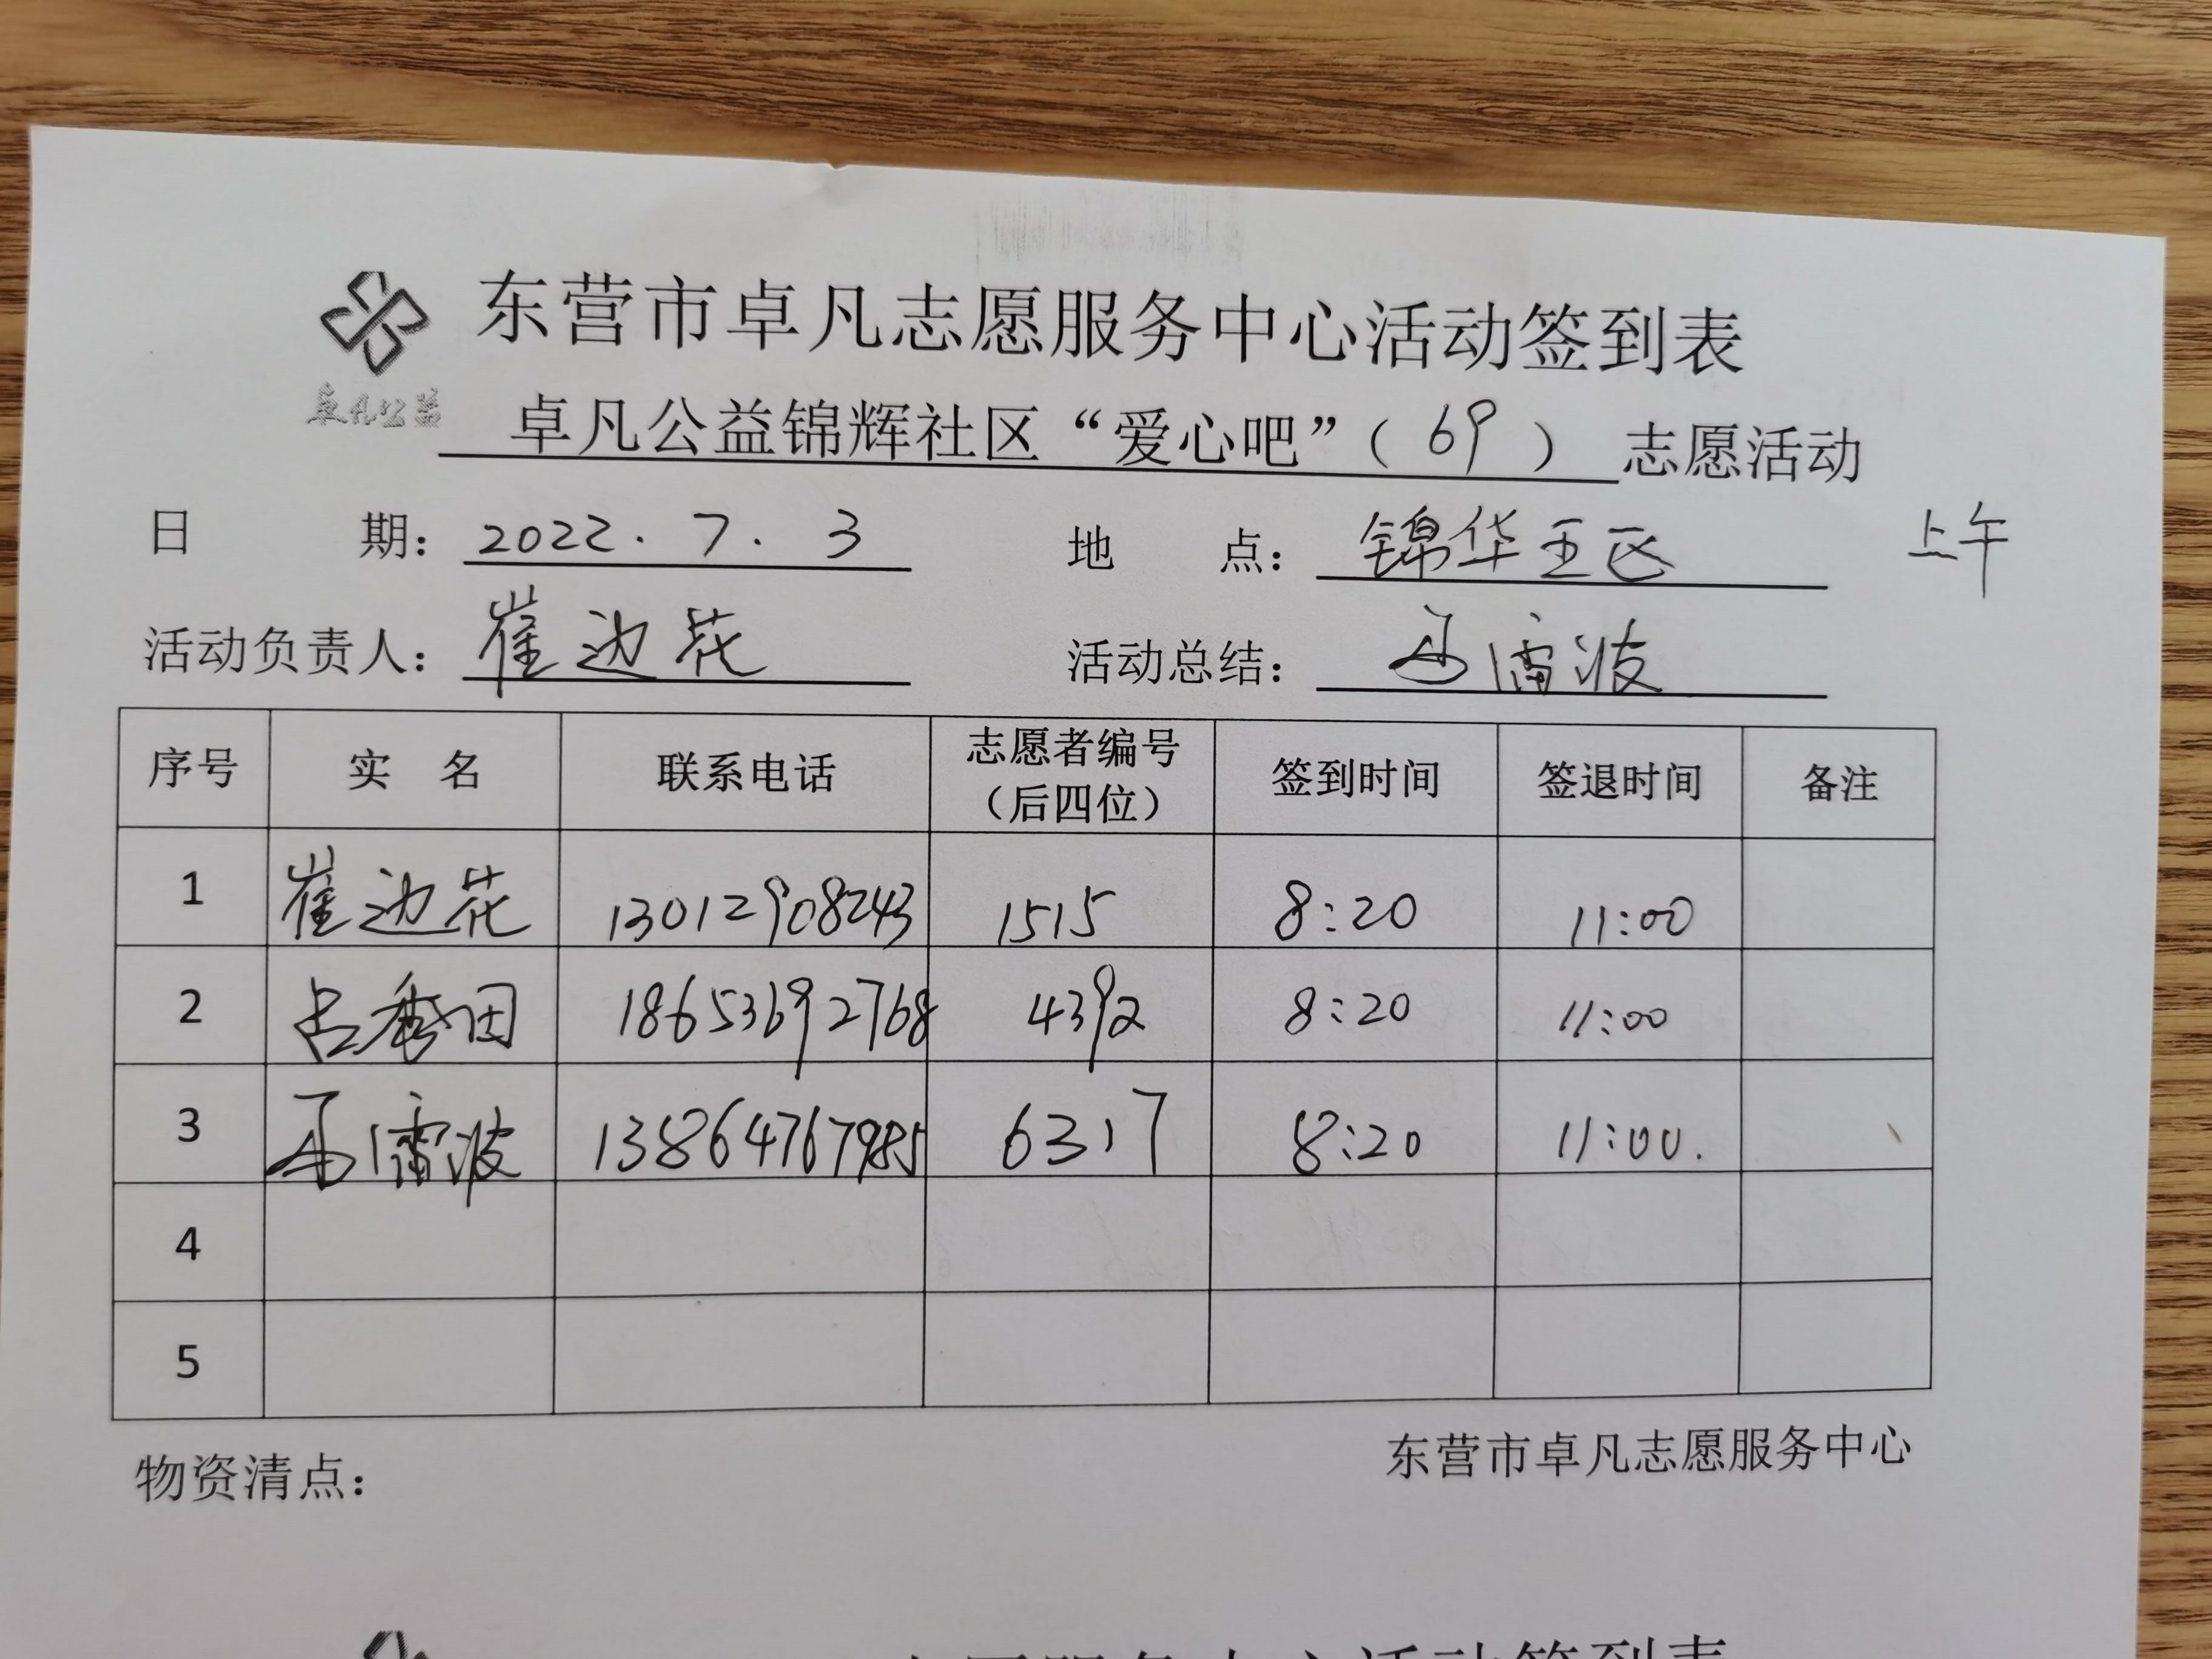 东营市卓凡志愿服务中心活动签到表
卓凡公益
卓凡公益锦辉社区“爱心吧”(69)志愿活动
日期：2022.7.3 地点：锦华五区 上午
活动负责人：崔边花 活动总结：
序号 实名 联系电话 志愿者编号（后四位） 签到时间 签退时间 备注
1 崔边花 13012908243 1515 8:20 11:00
2 18653692768 4392 8:20 11:00
3 13864767985 6317 8:20 11:00.
4
5
物资清点： 东营市卓凡志愿服务中心